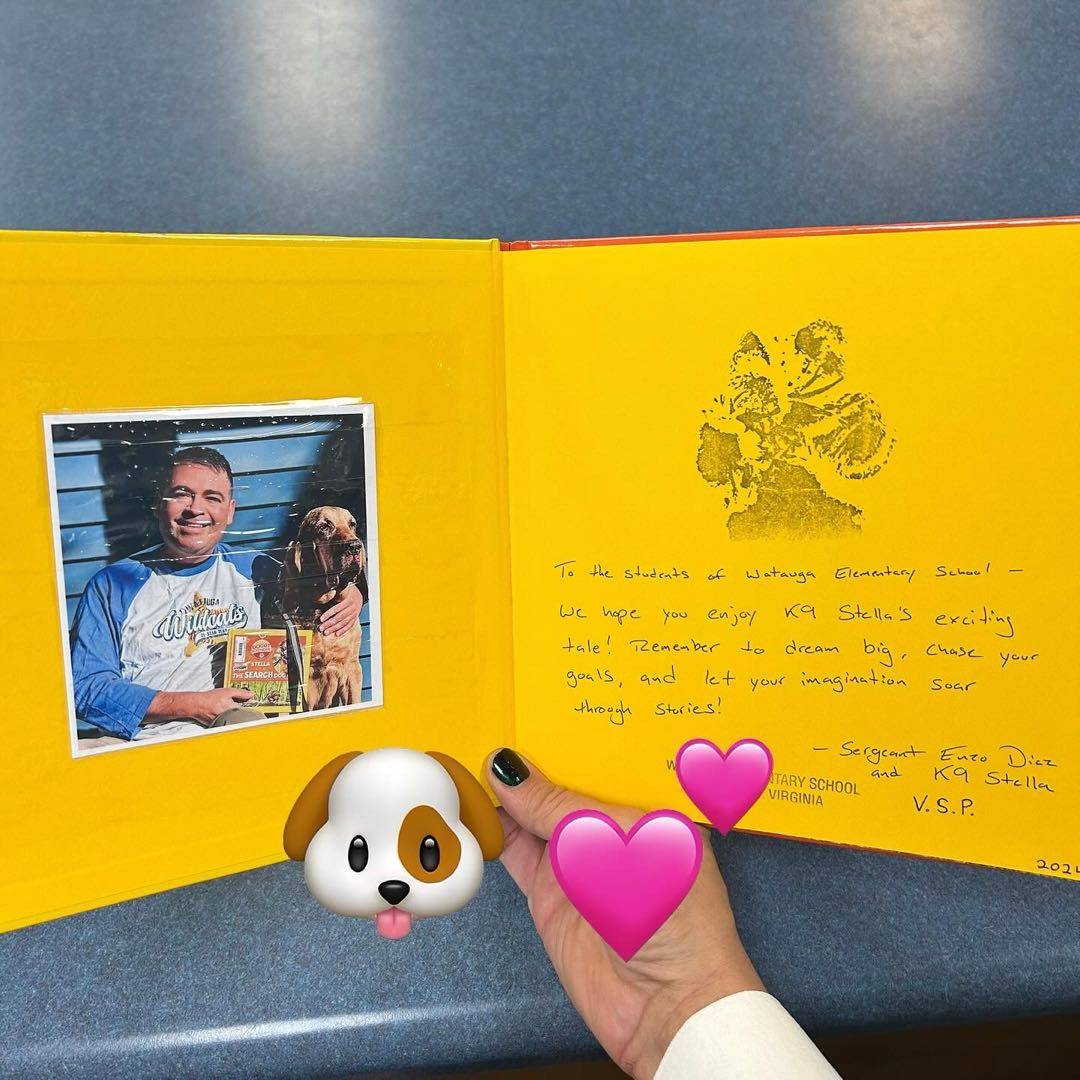 WATAUGA
Wildcats
STELLA
THE SEARCH DOG
To the students of Watauga Elementary School —
We hope you enjoy K9 Stella's exciting
tale! Remember to dream big, chase your
goals, and let your imagination soar
through stories!
— Sergeant Enzo Diaz
and K9 Stella
V.S.P.
TARY SCHOOL
VIRGINIA
2024